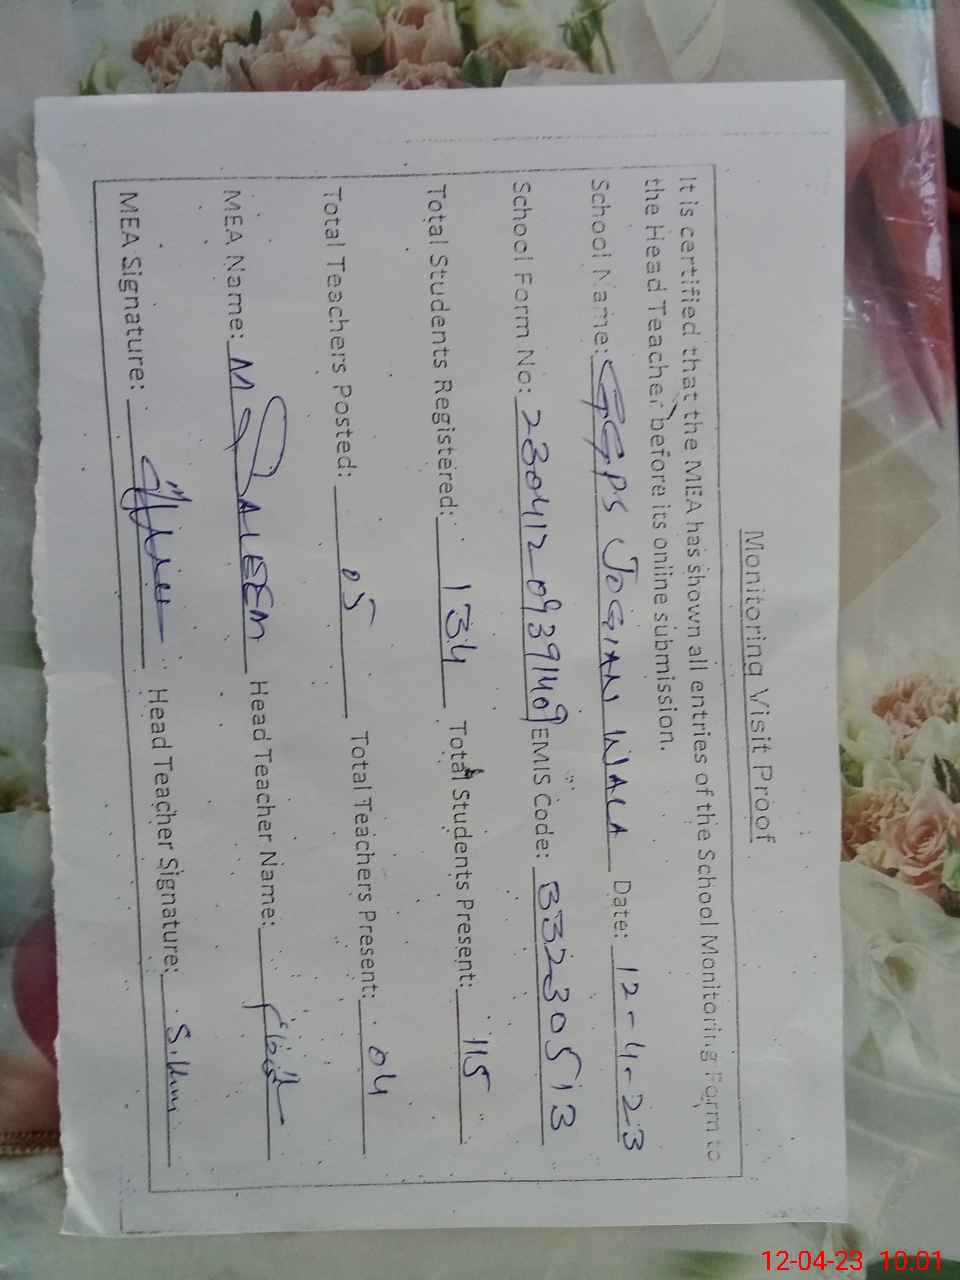 Monitoring Visit Proof
It is certified that the MEA has shown all entries of the School Monitoring Form to
the Head Teacher before its online submission.
School Name: GGPS JOGIAN WALA Date: 12-4-23
School Form No: 23041209391409 EMIS Code: 33230513
Total Students Registered: 134 Total Students Present: 115
Total Teachers Posted: 05 Total Teachers Present: 04
MEA Name: M SALEEM Head Teacher Name:
MEA Signature: Head Teacher Signature:
12-04-23 10:01